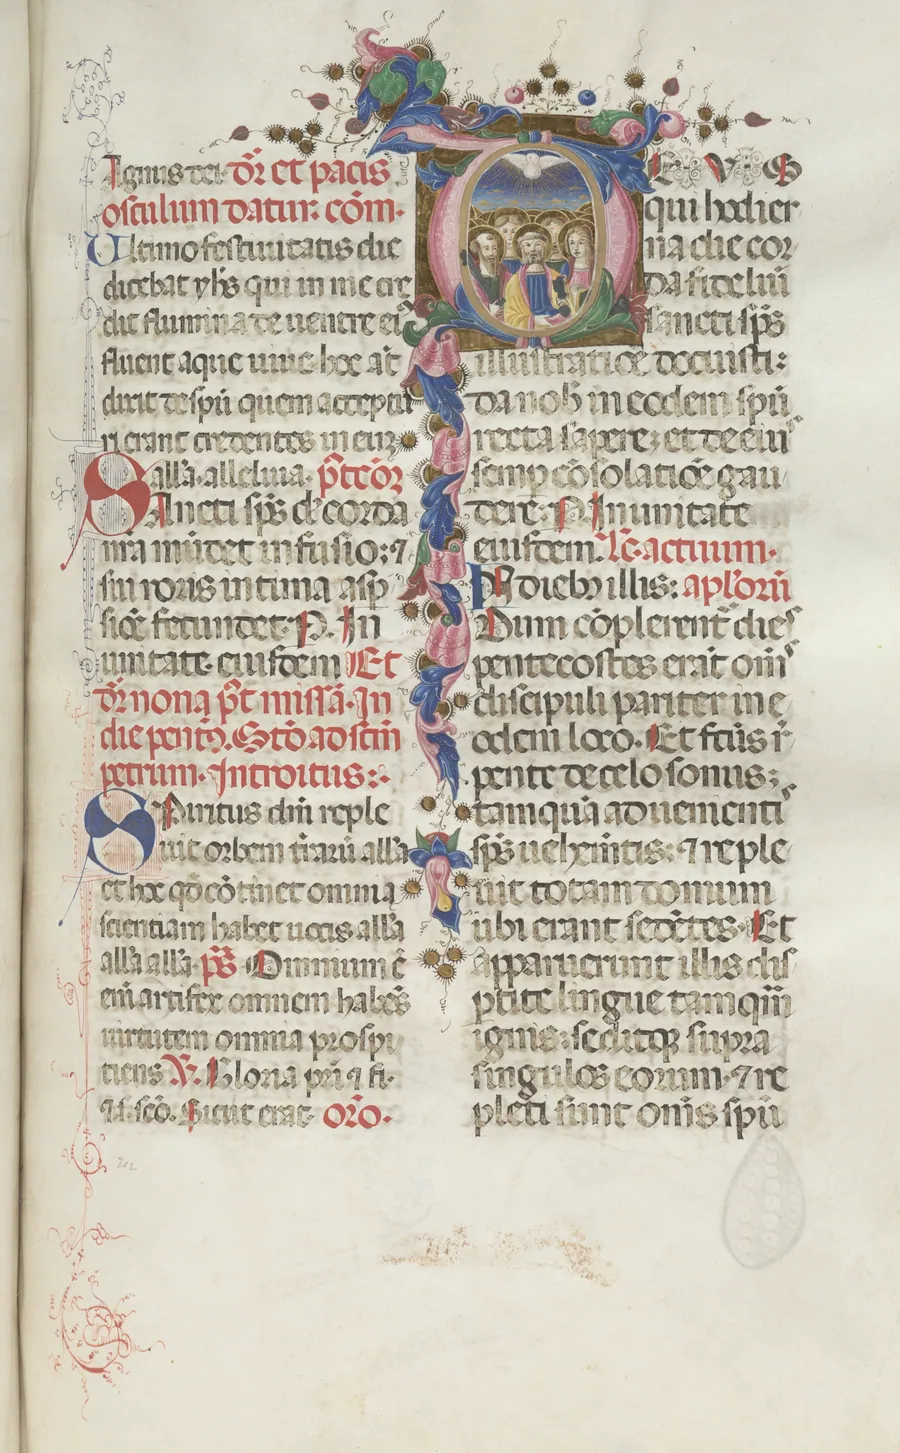 Agnus dei. dr̄ et pacis
osculum datur: cōm.
Ultimo festiuitatis die
dicebat yhs qui in me cre
dit flumina de uentre eiꝰ
fluent aque uiue hoc aūt
dixit de spū quem acceptu
ri erant credentes in eum
alla. alleluia. p̄t cōr
Sancti sp̄s dn̄e corda
nr̄a mūdet infusio: ⁊
sui roris intima asp̄
siōe fecundet. P. In
unitate eiusdem Et
dr̄ nona p̄t missā. In
die pent̄. Stō ad scm̄
petrum. Introitus:
Spiritus dn̄i reple
uit orbem t̄rarū alla
et hoc qd̄ cōtinet omnia
scientiam habet uocis alla
alla alla. p̄s Omnium ē
eīn artifex omnem habēs
uirtutem omnia prospi
ciens V. Gloria pr̄i ⁊ fi.
⁊ s. scō. Sicut erat oro.
DEVS
qui hodier
na die cor
da fideliū
sancti sp̄s
illustratiōe docuisti:
da nob̄ in eodem spū
recta sapere: et de eiuˢ
semp cōsolatiōe gau
dere. P. In unitate
eiusdem. Lc̄ actuum.
In diebꝫ illis: aplorū
Dum cōplerent̄ dieˢ
pentecostes erāt om̄ˢ
discipuli pariter in e
odem loco. Et fc̄us ē re
pente de celo sonus:
tamquā aduenientiˢ
sp̄s uehem̄tis: ⁊ reple
uit totam domum
ubi erant sedētes. Et
apparuerunt illis dis
ptite lingue tamqm̄
ignis: seditqꝫ supra
singulos eorum. ⁊ re
pleti sunt om̄s spū
212